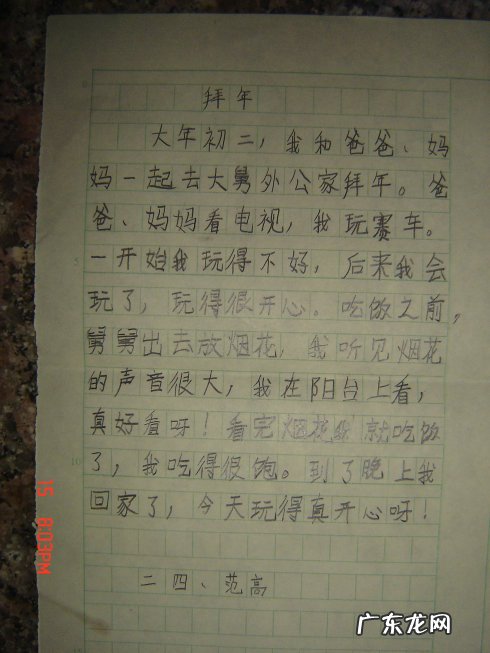 拜年
大年初二，我和爸爸、妈
妈一起去大舅外公家拜年。爸
爸、妈妈看电视，我玩赛车。
一开始我玩得不好，后来我会
玩了，玩得很开心。吃饭之前，
舅舅出去放烟花，我听见烟花
的声音很大，我在阳台上看，
真好看呀！看完烟花我就吃饭
了，我吃得很饱。到了晚上我
回家了，今天玩得真开心呀！
二四、范高
5
10
15 8:03PM
广东龙网